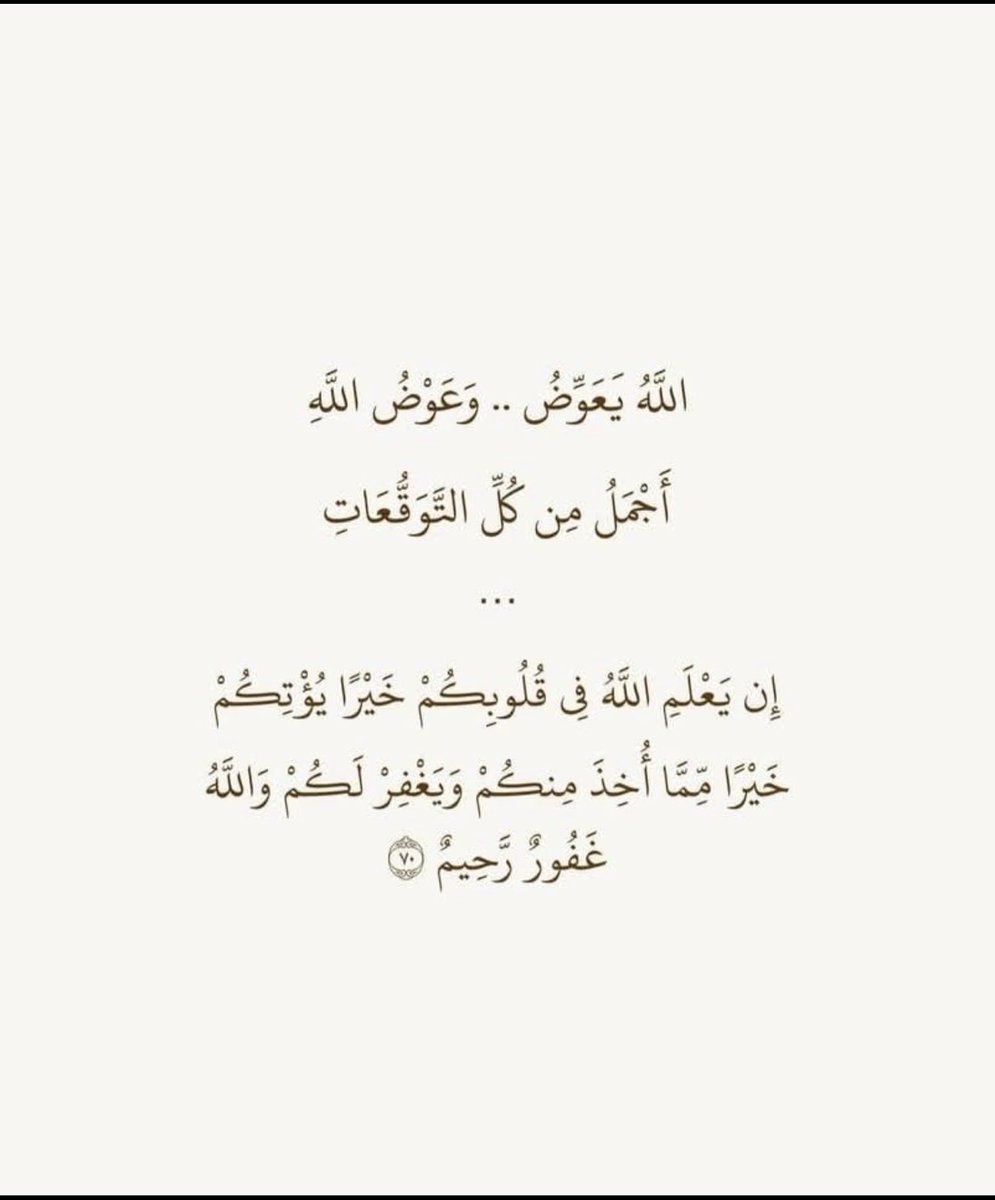 اللَّهُ يَعَوِّضُ .. وَعَوْضُ اللَّهِ
أَجْمَلُ مِن كُلِّ التَّوَقُّعَاتِ
...
إِن يَعْلَمِ اللَّهُ فِى قُلُوبِكُمْ خَيْرًا يُؤْتِكُمْ
خَيْرًا مِّمَّا أُخِذَ مِنكُمْ وَيَغْفِرْ لَكُمْ وَاللَّهُ
غَفُورٌ رَّحِيمٌ ٧٠